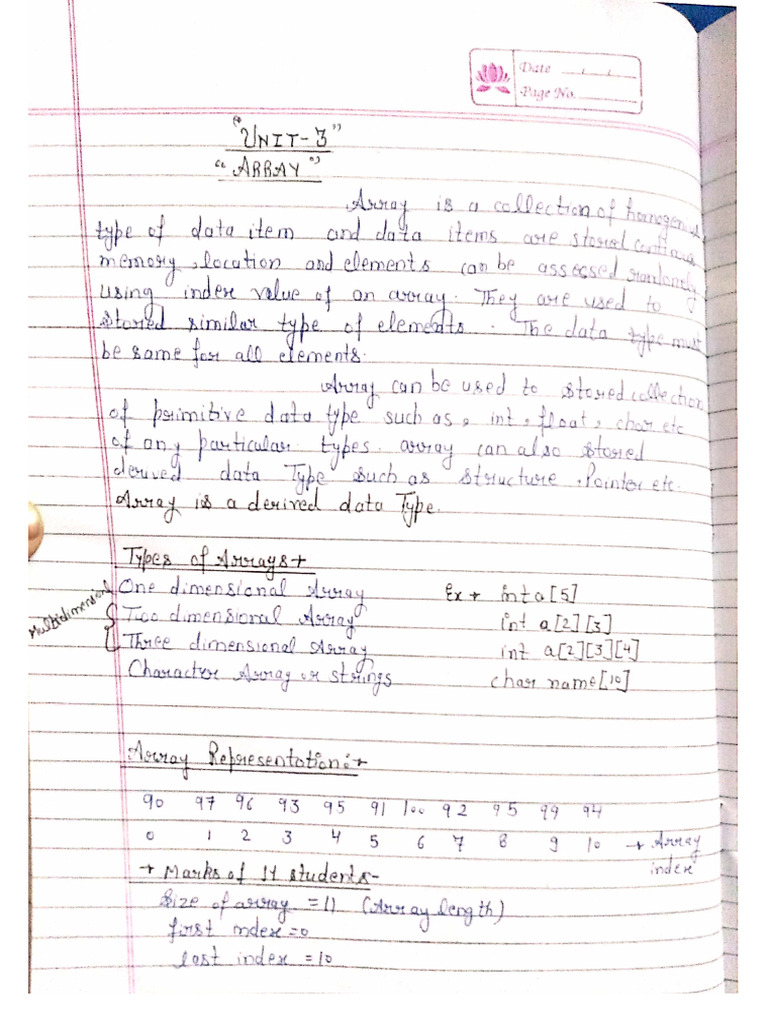 Date / /
Page No.
"UNIT-3"
"ARRAY"
Array is a collection of homogenious
type of data item and data items are stored
memory, location and elements can be assessed randomly
using index value of an array. They are used to
stored similar type of elements. The data type must
be same for all elements.
Array can be used to stored collection
of primitive data type such as, int, float, char etc
of any particular types. array can also stored
derived data Type such as structure, Pointer etc.
Array is a derived data Type.
Types of Arrays→
One dimensional Array Ex → int a[5]
Multidimensional
Two dimensional Array int a[2][3]
Three dimensional Array int a[2][3][4]
Character Array or strings char name[10]
Array Representation:→
90 97 96 93 95 91 100 92 95 99 94
0 1 2 3 4 5 6 7 8 9 10 → Array
index
→ Marks of 11 students-
Size of array = 11 (Array length)
first index = 0
last index = 10